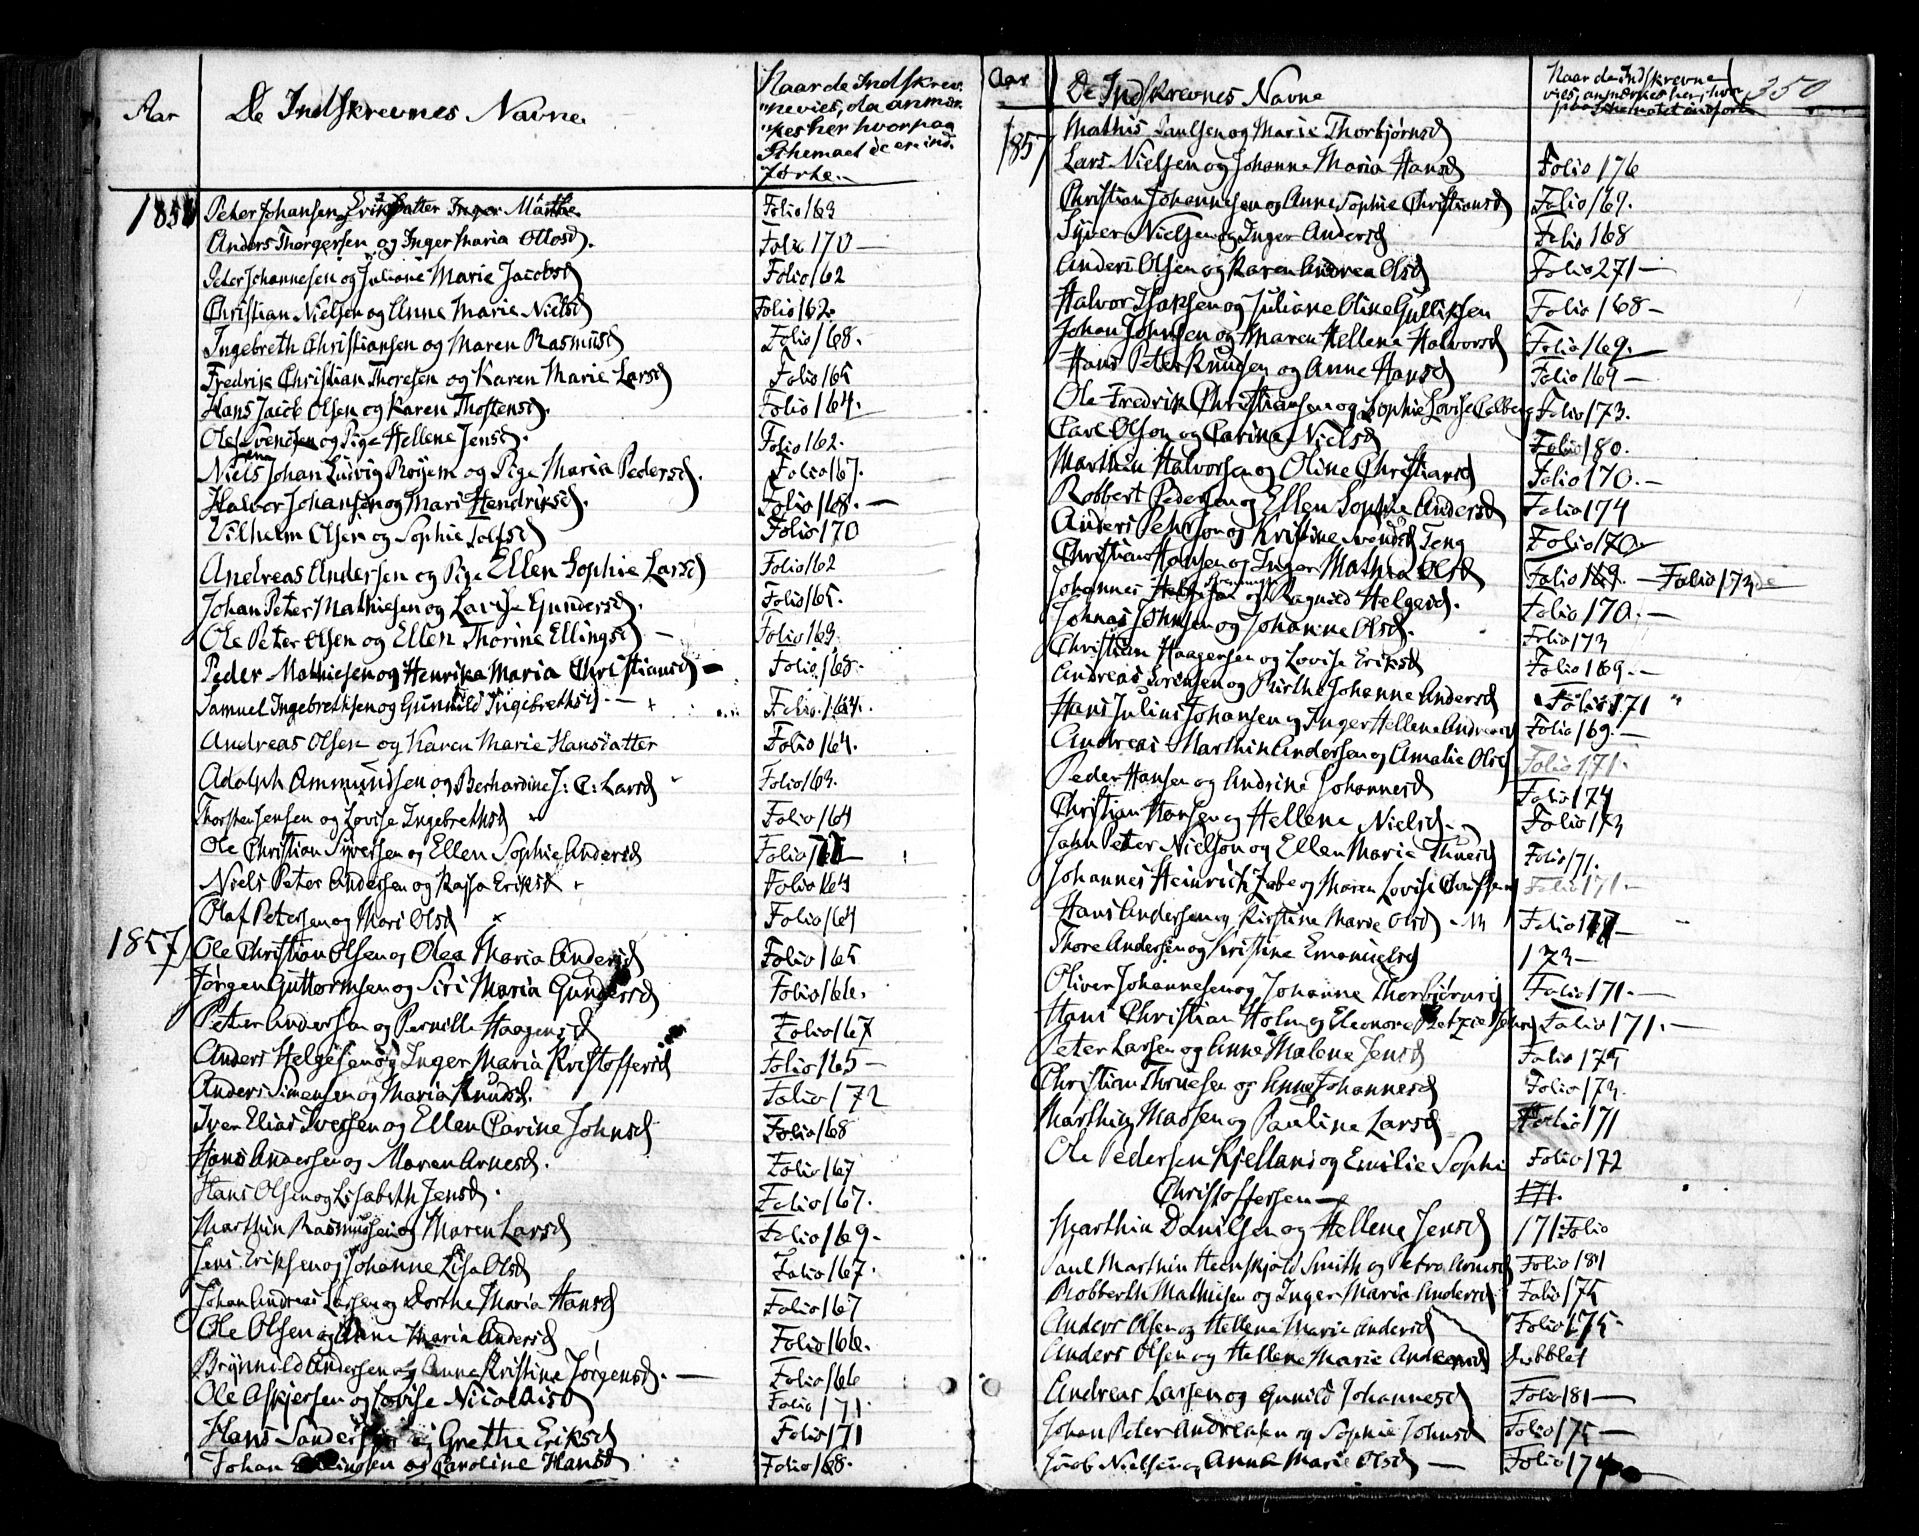 Aar
De Indskrevnes Navne
Naar de Indskrev-
nevies, da anmær-
kes her hvor paa
Schemaet de er ind-
førte.
1856
Peter Johansen Eriksdatter Inger Marthe Folio 163
Anders Thorgersen og Inger Maria Olsd. Folio 170
Peter Johannesen og Juliane Marie Jacobsd Folio 162
Christian Nielsen og Anne Marie Nielsd Folio 162.
Ingebreth Christiansen og Maren Rasmusd Folio 168.
Fredrik Christian Thoresen og Karen Marie Larsd Folio 165
Hans Jacob Olsen og Karen Thostensd. Folio 164.
Ole Svendsen og Pige Hellene Jensd. Folio 162.
Niels Johan Ludvig Røyem og Pige Maria Pedersd. Folio 167.
Halvor Johansen og Mari Hendriksd. Folio 168.
Vilhelm Olsen og Sophie Tolfsd Folio 170
Andreas Andersen og Pige Ellen Sophie Larsd Folio 162
Johan Peter Mathiesen og Lovise Gundersd. Folio 165.
Ole Peter Olsen og Ellen Thorine Ellingsd Folio 163
Peder Mathiesen og Henrika Maria Christiansd Folio 168.
Samuel Ingebrethsen og Gunnild Ingebrethsd. Folio 164.
Andreas Olsen og Karen Marie Hansdatter Folio 164.
Adolph Ammundsen og Berhardine J: C: Larsd Folio 163.
Thorsten Jensen og Lovise Ingebrethsd Folio 164
Ole Christian Syversen og Ellen Sophie Andersd Folio
Niels Peter Andersen og Kajsa Eriksd Folio 164
Olaf Petersen og Mari Olsd Folio 164
1857
Ole Christian Olsen og Olea Maria Andersd Folio 165
Jørgen Guttormsen og Siri Maria Gundersd Folio 166.
Peter Andersen og Pernille Haagensd Folio 167
Anders Helgesen og Inger Maria Kristoffersd Folio 165
Anders Simensen og Maria Knudsd. Folio 172
Iver Elias Iversen og Ellen Carine Johnsd Folio 168
Hans Andersen og Maren Arnesd. Folio 167
Hans Olsen og Lisabeth Jensd. Folio 167.
Marthin Rasmussen og Maren Larsd Folio 169.
Jens Eriksen og Johanne Lisa Olsd Folio 167.
Johan Andreas Larsen og Dorthe Maria Hansd Folio 167
Ole Olsen og Anne Maria Andersd Folio 166.
Brynnild Andersen og Anne Kristine Jørgensd. Folio 166
Ole Askjersen og Lovise Nicolaisd Folio 171
Hans og Grethe Eriksd Folio 171
Johan og Caroline Hansd Folio 168.
Aar
De Indskrevnes Navne
Naar de Indskrevne
vies, anmærkes her, hvor
paa Schematet indført
350
1857
Mathis Paulsen og Marie Thorbjørnsd
Lars Nielsen og Johanne Maria Hansd Folio 176
Christian Johannesen og Anne Sophie Christiansd Folio 169.
Syver Nielsen og Inger Andersd Folio 168
Anders Olsen og Karen Andrea Olsd Folio 271
Halvor Isaksen og Juliane Oline Gulliksen Folio 168
Johan Johnsen og Maren Hellene Halvorsd Folio 169.
Hans Peter Knudsen og Anne Hansd Folio 169
Ole Fredrik Christiansen og Sophie Lovise Folio 173.
Carl Olson og Carine Nielsd Folio 180.
Marthin Halvorsen og Oline Christiansd Folio 170.
Robbert Pedersen og Ellen Sophie Andersd Folio 174
Anders Pehrson og Kristine Svendsd Teng Folio 170.
Christian Hansen og Inger Mathia Olsd Folio 169. Folio 173
Johannes og Ragnild Helgesd. Folio 170.
Johnas Johnsen og Johanne Olsd. Folio 173
Christian Haagensen og Lovise Eriksd Folio 169.
Andreas Sørensen og Birthe Johanne Andersd Folio 171
Hans Julius Johansen og Inger Hellene Andersd Folio 169.
Andreas Marthin Andersen og Amalie Olsd Folio 171.
Peder Hansen og Andrine Johannesd Folio 174
Christian Hansen og Hellene Nielsd. Folio 173
John Peter Nielson og Ellen Marie Thuesd Folio 171.
Johannes Heinrich og Maren Lovise Folio 171.
Hans Andersen og Kirstine Marie Olsd Folio
Thore Andersen og Kristine Emanuelsd 173
Oliver Johannesen og Johanne Thorbjørnsd Folio 171.
Hans Christian Holm og Eleonore Folio 171.
Peter Larsen og Anne Malene Jensd Folio 175
Christian Thruesen og Anne Johannesd Folio 173.
Marthin Madsen og Pauline Larsd Folio 171
Ole Pedersen Kjelland og Emilie Sophi Folio 172
Christoffersen 171.
Marthin Danielsen og Hellene Jensd 171 Folio
Paul Marthin Heenskjold Smith og Petra Arnesd Folio 181
Robberth Mathisen og Inger Maria Andersd Folio 175
Anders Olsen og Hellene Marie Andersd Folio 175
Anders Olsen og Hellene Marie Andersd Dobblet
Andreas Larsen og Gunild Johannesd Folio 181
Johan Peter Andreasen og Sophie Johnsd Folio 175
Jacob Nielsen og Anne Marie Olsd Folio 174